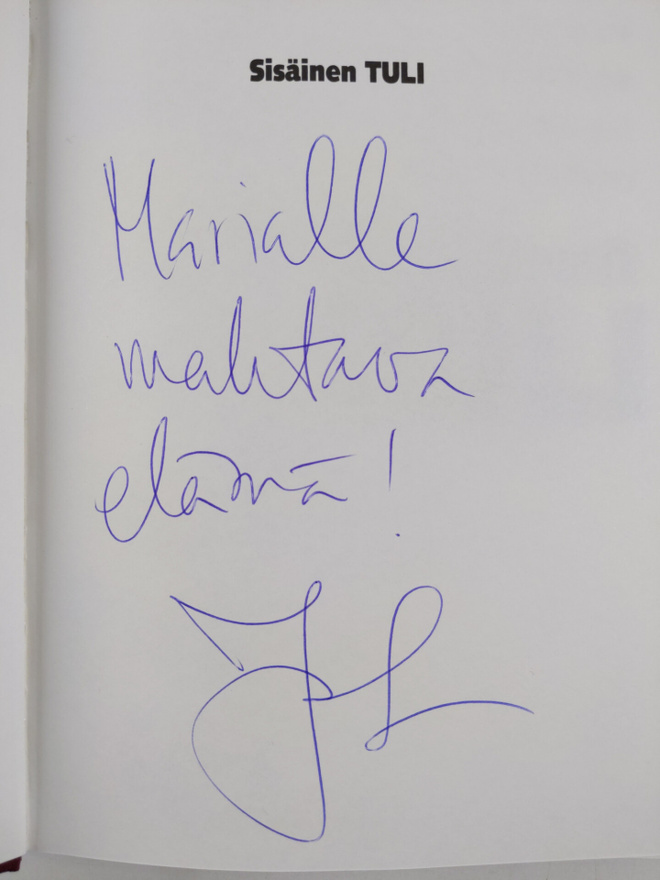 Sisäinen TULI
Marialle
mahtava
elämä!